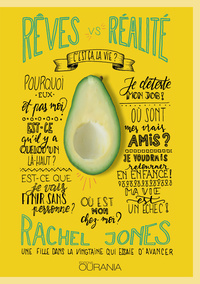 RÊVES VS RÉALITÉ
C'EST ÇA LA VIE ?
POURQUOI
EUX
et pas moi?
EST-CE
qu'il y a
QUELQU'UN
LÀ-HAUT ?
EST-CE QUE
je vais
FINIR SANS
personne?
Je déteste
MON JOB!
OÙ SONT
mes vrais
AMIS?
JE VOUDRAIS
retourner
EN ENFANCE!
MA VIE
est
UN ÉCHEC!
OÙ EST
MON
chez moi?
RACHEL JONES
UNE FILLE DANS LA VINGTAINE QUI ESSAIE D'AVANCER
OURANIA